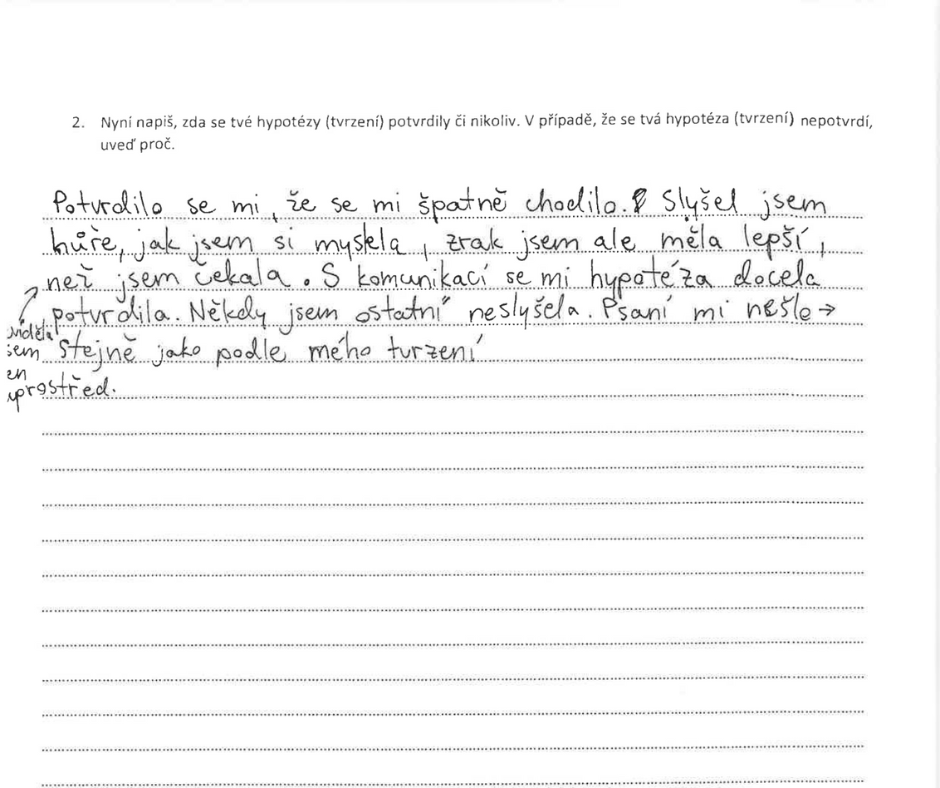 2. Nyní napiš, zda se tvé hypotézy (tvrzení) potvrdily či nikoliv. V případě, že se tvá hypotéza (tvrzení) nepotvrdí,
uveď proč.
Potvrdilo se mi, že se mi špatně chodilo. Slyšel jsem
hůře, jak jsem si myslela, zrak jsem ale měla lepší,
než jsem čekala. S komunikací se mi hypotéza docela
potvrdila. Někdy jsem ostatní neslyšela. Psaní mi nešle →
stejně jako podle mého tvrzení
viděla
jsem
en
uprostřed.